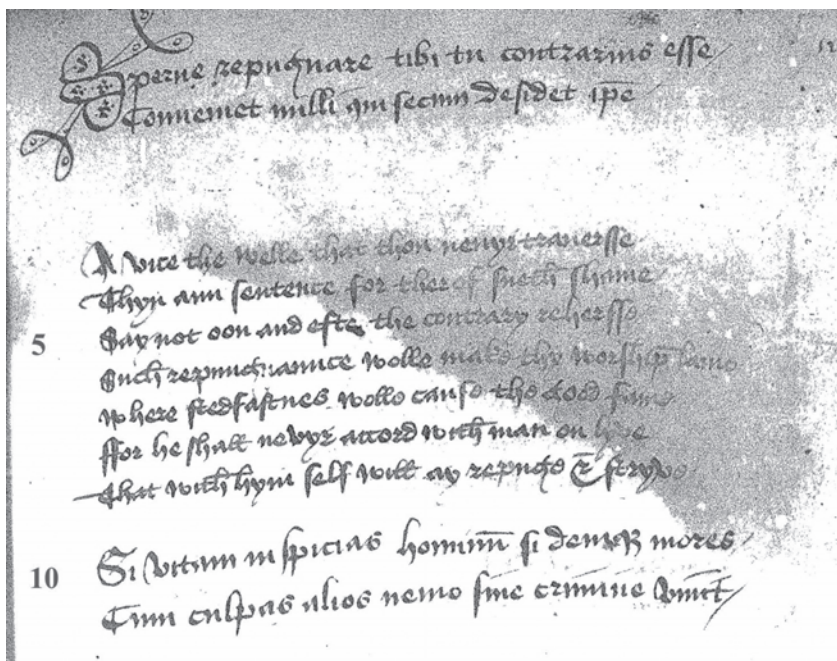 Sperne repugnare tibi tu contrarius esse
Conveniet nulli qui secum desidet ip̄e
A vice the welle that thou nevyr traversse
Thyn ann sentence for ther of sueth shame
5 Say not oon and efte the contrary rehersse
Such repugnaunce wolle make thy worship lame
Where stedfastnes wolle cause the good fame
ffor he shall nevyr accord with man on lyve
That with hym self will ay repugne & stryve
10 Si vitam inspicias hominum si deniqꝫ mores
Cum culpas alios nemo sine crimine vivit